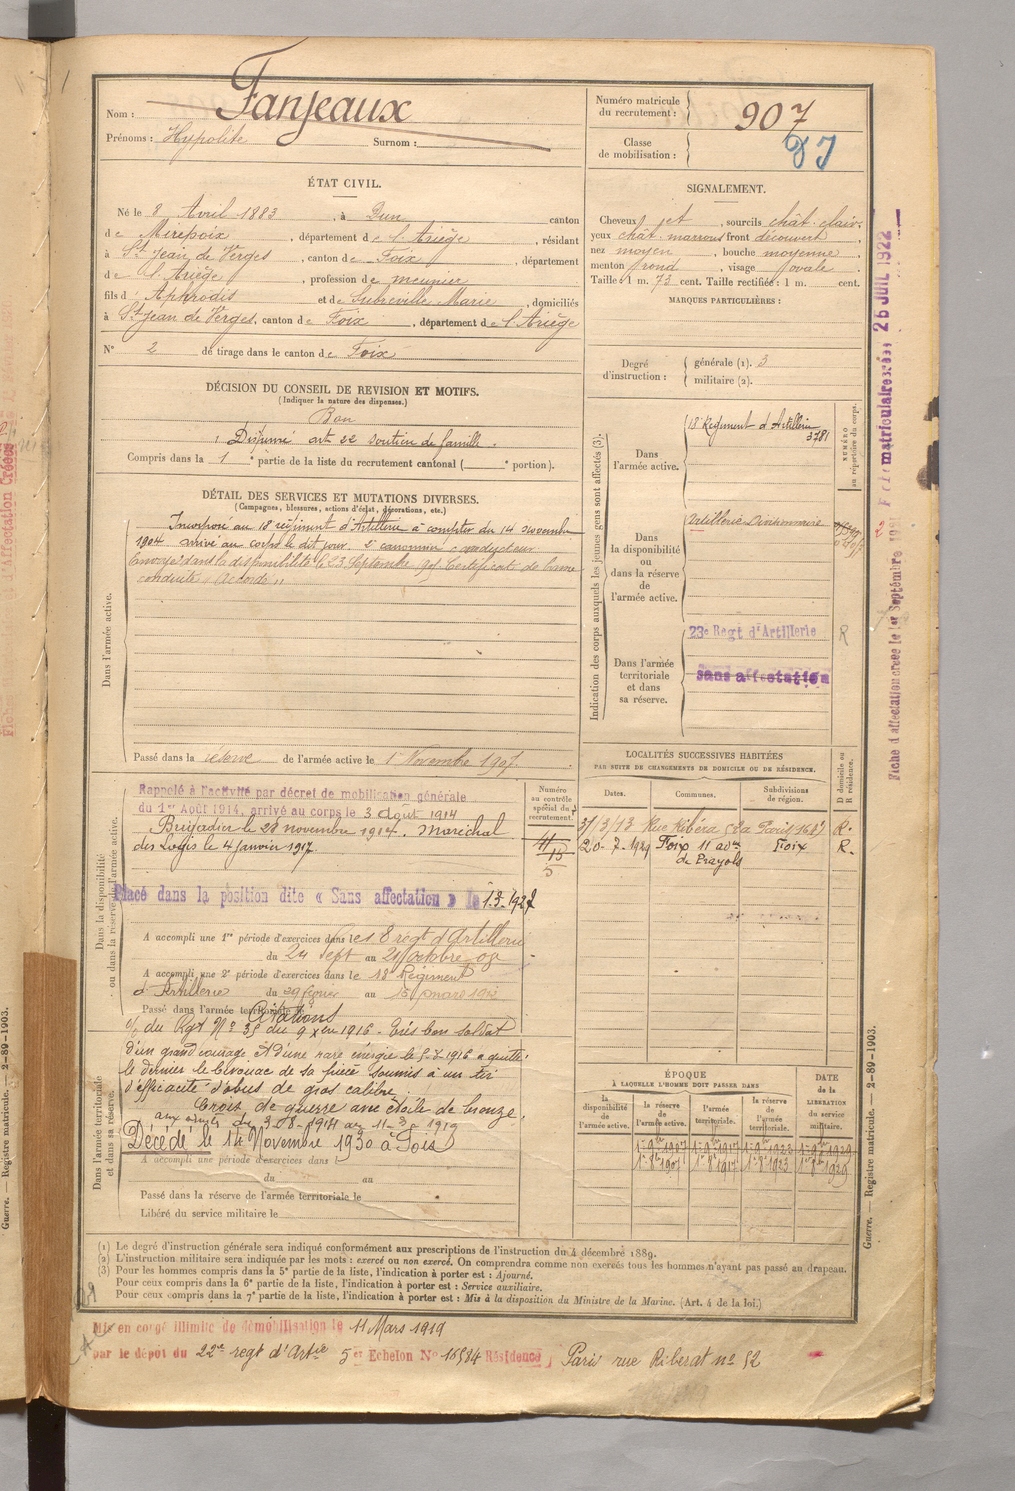 Nom : Fanjeaux
Prénoms : Hypolite Surnom :
Numéro matricule du recrutement : 907
Classe de mobilisation :
ÉTAT CIVIL.
Né le 8 Avril 1883, à Dun canton
de Mirepoix, département de l'Ariège, résidant
à St Jean de Verges, canton de Foix, département
de l'Ariège, profession de meunier
fils d' Aphrodis et de Subreville Marie, domiciliés
à St Jean de Verges, canton de Foix, département de l'Ariège
N° 2 de tirage dans le canton de Foix
SIGNALEMENT.
Cheveux jet, sourcils chât. clair,
yeux chât. marrons front découvert,
nez moyen, bouche moyenne,
menton rond, visage ovale.
Taille : 1 m. 73 cent. Taille rectifiée : 1 m. cent.
MARQUES PARTICULIÈRES :
Degré d'instruction : générale (1). 3
militaire (2).
DÉCISION DU CONSEIL DE REVISION ET MOTIFS.
(Indiquer la nature des dispenses.)
Bon
Dispensé art 22 soutien de famille.
Compris dans la 1e partie de la liste du recrutement cantonal ( e portion).
DÉTAIL DES SERVICES ET MUTATIONS DIVERSES.
(Campagnes, blessures, actions d'éclat, décorations, etc.)
Dans l'armée active.
Incorporé au 18 régiment d'Artillerie à compter du 14 novembre
1904 arrivé au corps le dit jour. 2e canonnier conducteur
Envoyé dans la disponibilité le 23 Septembre 1905 Certificat de bonne
conduite "Accordé"
Passé dans la réserve de l'armée active le 1er Novembre 1907.
Indication des corps auxquels les jeunes gens sont affectés (3).
NUMÉRO au répertoire du corps.
Dans l'armée active.
18 Régiment d'Artillerie
3781
Dans la disponibilité ou dans la réserve de l'armée active.
Artillerie Divisionnaire
Dans l'armée territoriale et dans sa réserve.
23e Regt d'Artillerie R
Sans affectation
LOCALITÉS SUCCESSIVES HABITÉES
PAR SUITE DE CHANGEMENTS DE DOMICILE OU DE RÉSIDENCE.
D domicile ou R résidence.
Dates. Communes. Subdivisions de région.
31/3/13 Rue Ribéra 52 R.
20-7-1929 Foix 11 av. de Prayols Foix R.
Numéro au contrôle spécial du recrutement.
Dans la disponibilité ou dans la réserve de l'armée active.
Rappelé à l'activité par décret de mobilisation générale
du 1er Août 1914, arrivé au corps le 3 Août 1914
Brigadier le 28 novembre 1914. Maréchal
des Logis le 4 janvier 1917.
Placé dans la position dite « Sans affectation » le 1.3.1927
A accompli une 1re période d'exercices dans le 18 regt d'Artillerie
du 24 Sept au 21 octobre 09
A accompli une 2e période d'exercices dans le 18e Régiment
d'Artillerie du 29 février au 15 mars 1912
Passé dans l'armée territoriale le
Citations
du Rgt N° 35 du 9 xbre 1916 - Très bon soldat
d'un grand courage et d'une rare énergie le 5.7.1916 a quitté
le dernier le bivouac de sa pièce soumis à un tir
d'efficacité d'obus de gros calibre
Croix de guerre une étoile de bronze.
aux armées du 3-8-1914 au 11-3-1919
Décédé le 14 Novembre 1930 à Foix
Dans l'armée territoriale et dans sa réserve.
A accompli une période d'exercices dans
du au
Passé dans la réserve de l'armée territoriale le
Libéré du service militaire le
ÉPOQUE
À LAQUELLE L'HOMME DOIT PASSER DANS
la disponibilité de l'armée active.
la réserve de l'armée active.
l'armée territoriale.
la réserve de l'armée territoriale.
DATE de la LIBÉRATION du service militaire.
(1) Le degré d'instruction générale sera indiqué conformément aux prescriptions de l'instruction du 4 décembre 1889.
(2) L'instruction militaire sera indiquée par les mots : exercé ou non exercé. On comprendra comme non exercés tous les hommes n'ayant pas passé au drapeau.
(3) Pour les hommes compris dans la 5e partie de la liste, l'indication à porter est : Ajourné.
Pour ceux compris dans la 6e partie de la liste, l'indication à porter est : Service auxiliaire.
Pour ceux compris dans la 7e partie de la liste, l'indication à porter est : Mis à la disposition du Ministre de la Marine. (Art. 4 de la loi.)
Mis en congé illimité de démobilisation le 11 Mars 1919
par le dépôt du 22e regt d'Artie 5er Echelon N° 16584 Résidence, Paris rue Riberat n° 52
Guerre. — Registre matricule. — 2-89-1903.
Guerre. — Registre matricule. — 2-89-1903.
matriculaire créée 26 JUIL 1922
Fiche d'affectation créée le 1er Septembre